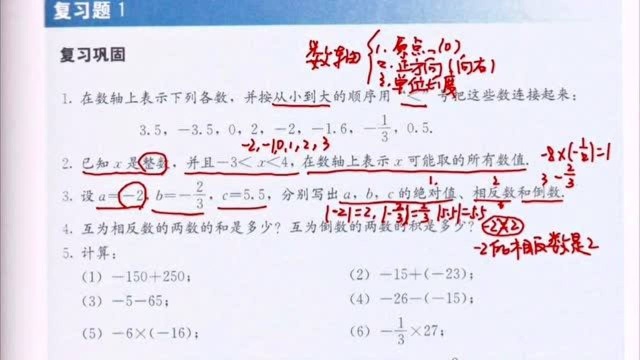 复习题 1
复习巩固
数轴 1. 原点 (0)
2. 正方向 (向右)
3. 单位长度
1. 在数轴上表示下列各数，并按从小到大的顺序用“<”号把这些数连接起来：
3.5，-3.5，0，2，-2，-1.6，-1/3，0.5.
-2,-1,0,1,2,3
2. 已知 x 是整数，并且-3<x<4，在数轴上表示 x 可能取的所有数值.
3. 设 a=-2，b=-2/3，c=5.5，分别写出 a，b，c 的绝对值、相反数和倒数.
|-2|=2, |-2/3|=2/3, |5.5|=5.5
4. 互为相反数的两数的和是多少？互为倒数的两数的积是多少？
-2的相反数是2
5. 计算：
(1) -150+250；
(2) -15+(-23)；
(3) -5-65；
(4) -26-(-15)；
(5) -6×(-16)；
(6) -1/3×27；